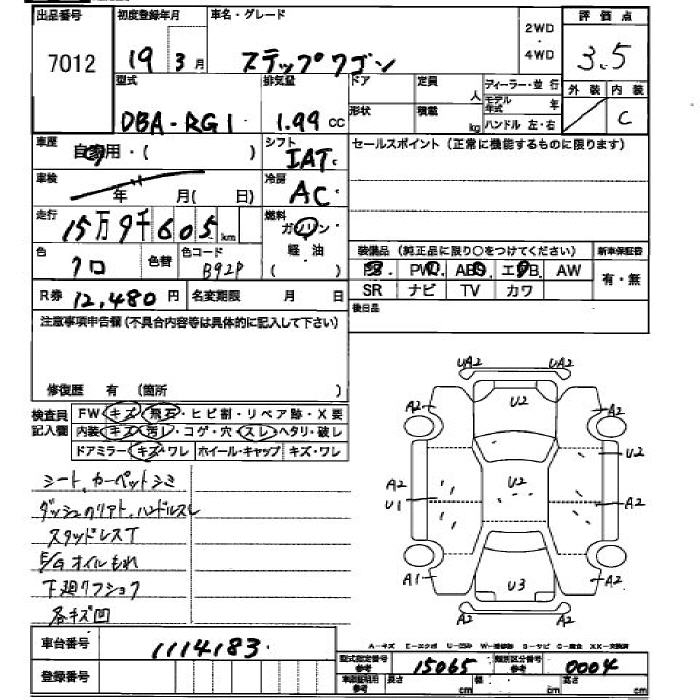 出品番号 初度登録年月 車名・グレード 2WD・4WD 評価点
7012 19 3月 ステップワゴン 3.5
型式 排気量 ドア 定員 人 ディーラー・並行 外装 内装
形状 積載 kg モデル年式 年 C
DBA-RG1 1.99 CC ハンドル 左・右
車歴 自家用・( ) シフト IAT セールスポイント(正常に機能するものに限ります)
車検 年 月( 日) 冷房 AC
走行 15万9千605 km 燃料 ガソリン
軽油
( )
色 クロ 色替 色コード B92P 装備品(純正品に限り○をつけてください) 新車保証書
PS PW ABS エアB AW 有・無
R券 12,480円 名変期限 月 日 SR ナビ TV カワ
注意事項申告欄(不具合内容等は具体的に記入して下さい) 後日品
修復歴 有 (箇所 )
検査員記入欄 FW キズ・飛石・ヒビ割・リペア跡・X要
内装 キズ・汚し・コゲ・穴・スレ・ヘタリ・破し
ドアミラー キズ・ワレ ホイール・キャップ キズ・ワレ
シート、カーペットシミ
ダッシュのリアト、ハンドルスレ
スタッドレスT
E/Gオイルもれ
下廻りフショク
各キズ凹
UA2 UA2
A2 U2 A2
U2
A2 U2
U1 A2
A1 U3 A2
A2 A2
車台番号 1114183
A-キズ E-エクボ U-凹み W-補修跡 S-サビ C-腐食 XX-交換済
型式指定番号 参考 15065 類別区分番号 参考 0004
登録番号 車庫証明用 参考 長さ cm 幅 cm 高さ cm